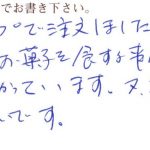 でお書き下さい。
プで注文しました
お菓子を展する事
かっています。又、
です。